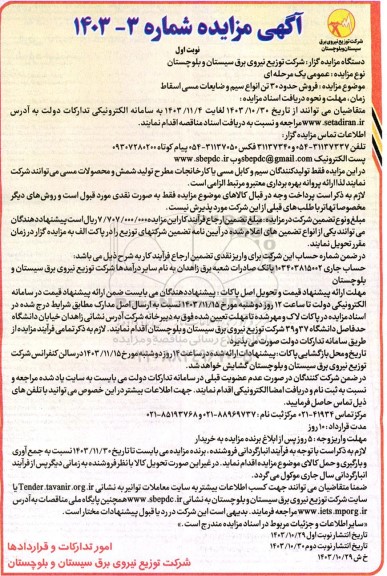 شرکت توزیع نیروی برق
سیستان و بلوچستان
آگهی مزایده شماره ۳- ۱۴۰۳
نوبت اول
دستگاه مزایده گزار: شرکت توزیع نیروی برق سیستان و بلوچستان
نوع مزایده: عمومی یک مرحله ای
موضوع مزایده: فروش حدود ۳۰ تن انواع سیم و ضایعات مسی اسقاط
زمان، مهلت و نحوه دریافت اسناد مزایده:
متقاضیان می توانند از تاریخ ۱۴۰۳/۱۰/۳۰ لغایت ۱۴۰۳/۱۱/۴ به سامانه الکترونیکی تدارکات دولت به آدرس
www.setadiran.ir مراجعه و نسبت به دریافت اسناد مناقصه اقدام نمایند.
اطلاعات تماس مزایده گزار:
تلفن ۳۱۱۳۷۳۳۷-۰۵۴ و ۳۱۱۳۷۳۴۰ فکس ۳۱۱۳۷۰۵۰-۰۵۴ پیام کوتاه ۰۹۳۰۷۲۸۰۲۰۰
پست الکترونیک sbepdc@gmail.com وب www.sbepdc.ir
در این مزایده فقط تولیدکنندگان سیم و کابل مسی یا کارخانجات مطرح تولید شمش و محصولات مسی می توانند شرکت
نمایند لذا ارائه پروانه بهره برداری معتبر و مرتبط الزامی است.
لازم به ذکر است پرداخت وجه در قبال کالاهای موضوع مزایده فقط به صورت نقدی مورد قبول است و روش های دیگر
مخصوصا تهاتر با طلب های قبلی از این شرکت مورد پذیرش نیست.
مبلغ و نوع تضمین شرکت در مزایده: مبلغ تضمین ارجاع فرآیند کار این مزایده ۷/۷۰۷/۰۰۰/۰۰۰ ریال است پیشنهاد دهندگان
می توانند یکی از انواع تضمین های اعلام شده در آیین نامه تضمین شرکتهای توزیع را در پاکت الف به مزایده گزار در زمان
مقرر تحویل نمایند.
در ضمن شماره حساب این شرکت برای واریز نقدی تضمین ارجاع فرآیند کار به شرح ذیل می باشد:
حساب جاری ۰۱۰۳۴۰۳۸۱۵۰۰۲ بانک صادرات شعبه برق زاهدان به نام سایر درآمدها شرکت توزیع نیروی برق سیستان و
بلوچستان
مهلت ارائه پیشنهاد قیمت و تحویل اصل پاکات: پیشنهاددهندگان می بایست ضمن ارائه پیشنهاد قیمت در سامانه
الکترونیکی دولت تا ساعت ۱۲ روز دوشنبه مورخ ۱۴۰۳/۱۱/۱۵ نسبت به ارسال اصل مدارک مطابق شرایط درج شده در
اسناد مزایده در پاکات لاک و مهر شده تا مهلت تعیین شده فوق به دبیرخانه شرکت آدرس نشانی زاهدان خیابان دانشگاه
حدفاصل دانشگاه ۳۷ و ۳۹ شرکت توزیع نیروی برق سیستان و بلوچستان اقدام نمایند. لازم به ذکر تمامی فرآیند مزایده از
طریق سامانه تدارکات دولت صورت می پذیرد.
تاریخ و محل بازگشایی پاکات: پیشنهادات ارائه شده در ساعت ۱۴ روز دوشنبه مورخ ۱۴۰۳/۱۱/۱۵ در سالن کنفرانس شرکت
توزیع نیروی برق سیستان و بلوچستان گشایش خواهد شد.
در ضمن شرکت کنندگان در صورت عدم عضویت قبلی در سامانه تدارکات دولت می بایست به سایت یاد شده مراجعه و
نسبت به ثبت نام و دریافت امضا الکترونیکی اقدام نمایند. جهت اطلاعات بیشتر در این خصوص می توانید با تلفن های
ذیل تماس حاصل فرمایید.
مرکز تماس ۴۱۹۳۴-۰۲۱ مرکز ثبت نام: ۸۸۹۶۹۷۳۷-۰۲۱ و ۸۵۱۹۳۷۶۸-۰۲۱
مدت قرارداد: ۱۰ روز
مهلت واریز وجه: ۵ روز پس از ابلاغ برنده مزایده به خریدار
لازم به ذکر است با توجه به فرآیند انبارگردانی فروشنده، برنده مزایده می بایست تا تاریخ ۱۴۰۳/۱۱/۳۰ نسبت به جمع آوری
و بارگیری و حمل کالای موضوع مزایده اقدام نماید. در غیر این صورت تحویل کالا با نظر فروشنده به زمانی دیگر پس از فرآیند
انبارگردانی سال جاری موکول می گردد.
ضمنا متقاضیان می توانند جهت کسب اطلاعات بیشتر به سایت معاملات توانیر به نشانی Tender.tavanir.org.ir یا
سایت شرکت توزیع نیروی برق سیستان و بلوچستان به نشانی www.sbepdc.ir و همچنین پایگاه ملی مناقصات به آدرس
www.iets.mporg.ir مراجعه فرمایند. بدیهی است این شرکت در رد یا قبول پیشنهادات مختار است.
«سایر اطلاعات و جزئیات مربوط در اسناد مزایده مندرج است.»
تاریخ انتشار نوبت اول ۱۴۰۳/۱۰/۲۹
تاریخ انتشار نوبت دوم ۱۴۰۳/۱۰/۳۰
خ ش ۱۴۰۳/۱۰/۲۹
امور تدارکات و قراردادها
شرکت توزیع نیروی برق سیستان و بلوچستان